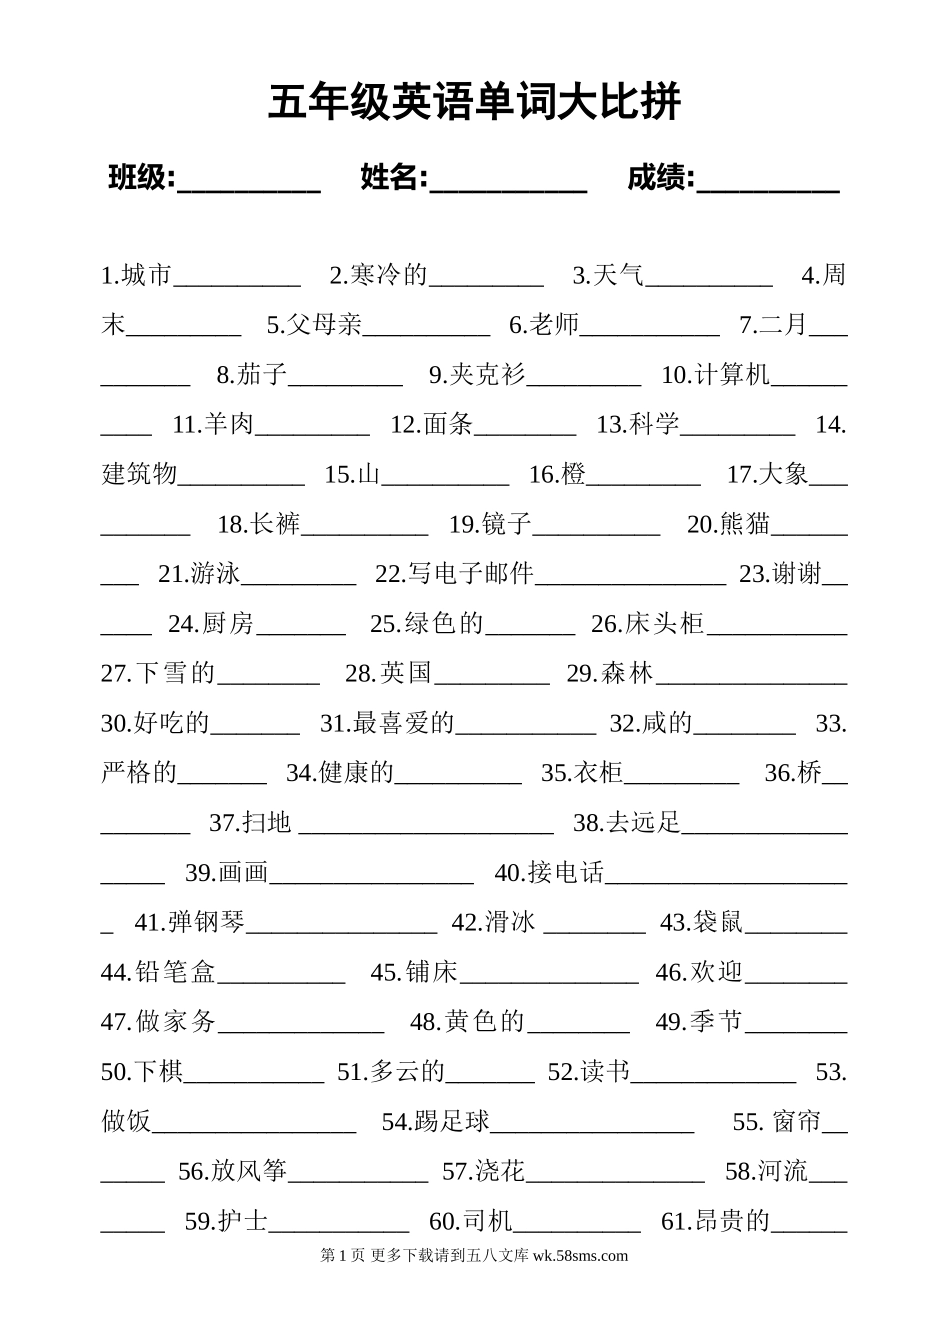 五年级英语单词大比拼
班级:__________ 姓名:___________ 成绩:__________
1.城市__________ 2.寒冷的_________ 3.天气__________ 4.周
末_________ 5.父母亲__________ 6.老师___________ 7.二月___
_______ 8.茄子_________ 9.夹克衫_________ 10.计算机______
____ 11.羊肉_________ 12.面条________ 13.科学_________ 14.
建筑物__________ 15.山__________ 16.橙_________ 17.大象___
_______ 18.长裤__________ 19.镜子__________ 20.熊猫______
___ 21.游泳_________ 22.写电子邮件_______________ 23.谢谢__
____ 24.厨房_______ 25.绿色的_______ 26.床头柜___________
27.下雪的________ 28.英国_________ 29.森林_______________
30.好吃的_______ 31.最喜爱的___________ 32.咸的________ 33.
严格的_______ 34.健康的__________ 35.衣柜_________ 36.桥__
_______ 37.扫地 ____________________ 38.去远足_____________
_____ 39.画画________________ 40.接电话___________________
_ 41.弹钢琴_______________ 42.滑冰 ________ 43.袋鼠________
44.铅笔盒__________ 45.铺床______________ 46.欢迎________
47.做家务_____________ 48.黄色的________ 49.季节________
50.下棋___________ 51.多云的_______ 52.读书_____________ 53.
做饭________________ 54.踢足球________________ 55. 窗帘__
_____ 56.放风筝___________ 57.浇花______________ 58.河流___
_____ 59.护士___________ 60.司机__________ 61.昂贵的______
第 1 页 更多下载请到五八文库 wk.58sms.com